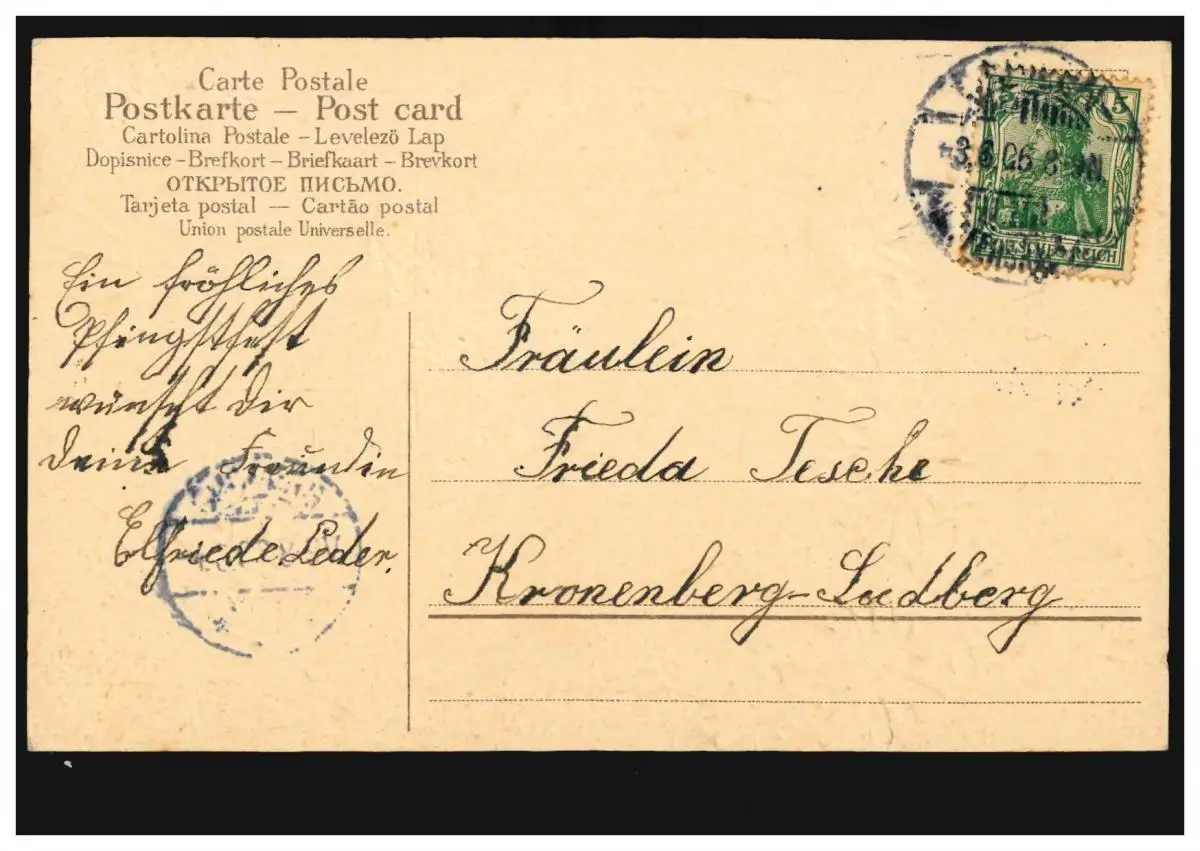 Carte Postale
Postkarte — Post card
Cartolina Postale – Levelező Lap
Dopisnice – Brefkort – Briefkaart – Brevkort
ОТКРЫТОЕ ПИСЬМО.
Tarjeta postal — Cartão postal
Union postale Universelle.
Ein fröhliches
Pfingstfest
wünscht Dir
Deine Freundin
Elfriede Leder.
3.6.06 8-9N.
5
DEUTSCHES REICH
Fräulein
Frieda Tesche
Kronenberg-Sudberg